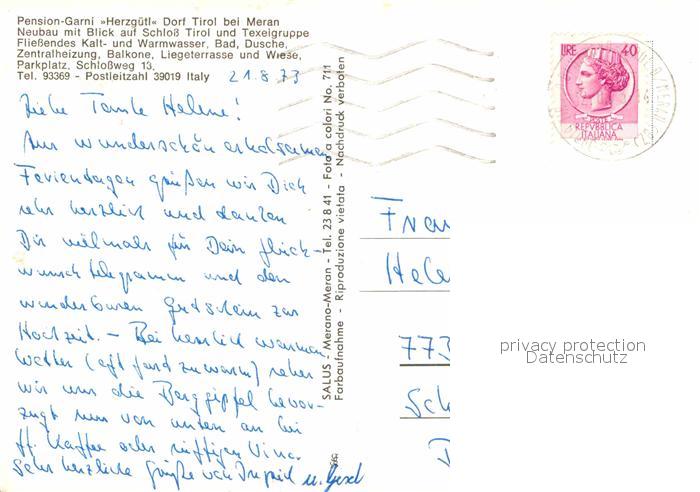 Pension-Garni »Herzgütl« Dorf Tirol bei Meran
Neubau mit Blick auf Schloß Tirol und Texelgruppe
Fließendes Kalt- und Warmwasser, Bad, Dusche,
Zentralheizung, Balkone, Liegeterrasse und Wiese,
Parkplatz, Schloßweg 13,
Tel. 93369 - Postleitzahl 39019 Italy
21.8.73
Liebe Tante Helene!
Aus wunderschön erholsamen
Ferientagen grüßen wir Dich
sehr herzlich und danken
Dir vielmals für Dein Glück-
wunschtelegramm und den
wunderbaren Gutschein zur
Hochzeit. – Bei herrlich warmen
Wetter (oft fast zu warm) sehen
wir uns die Berggipfel bevor-
zugt nur von unten an bei
Kaffee oder süffigen Vino.
Sehr herzliche Grüße von Ingrid u.
SALUS - Merano-Meran - Tel. 23841 - Foto a colori No. 711
Farbaufnahme - Riproduzione vietata - Nachdruck verboten
LIRE 40
POSTE
REPVBBLICA
ITALIANA
Frau
Hele
773
Sch
privacy protection
Datenschutz